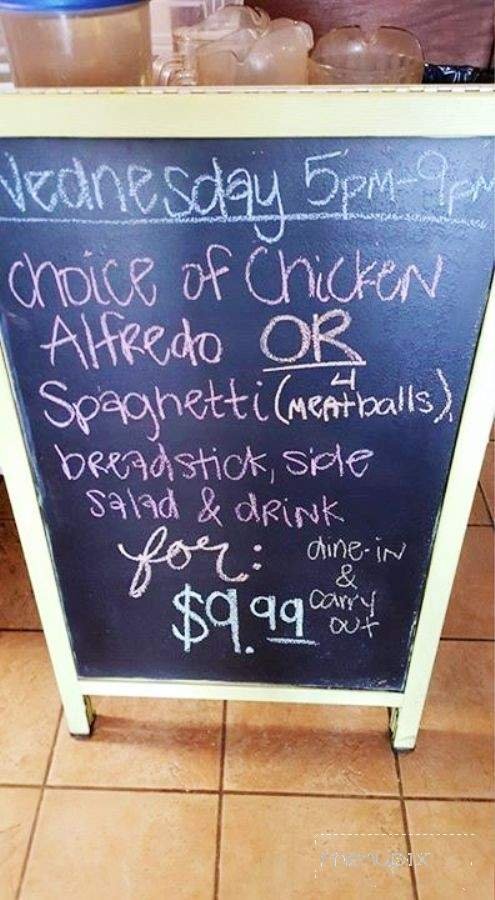 Wednesday 5pm-9pm
choice of Chicken
Alfredo OR
Spaghetti (4 meatballs),
breadstick, side
salad & drink
for:
$9.99
dine-in
&
carry
out
menupix